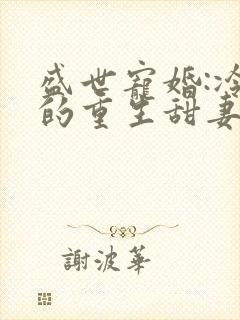 盛世寵婚:冷
的重生甜妻
謝波華